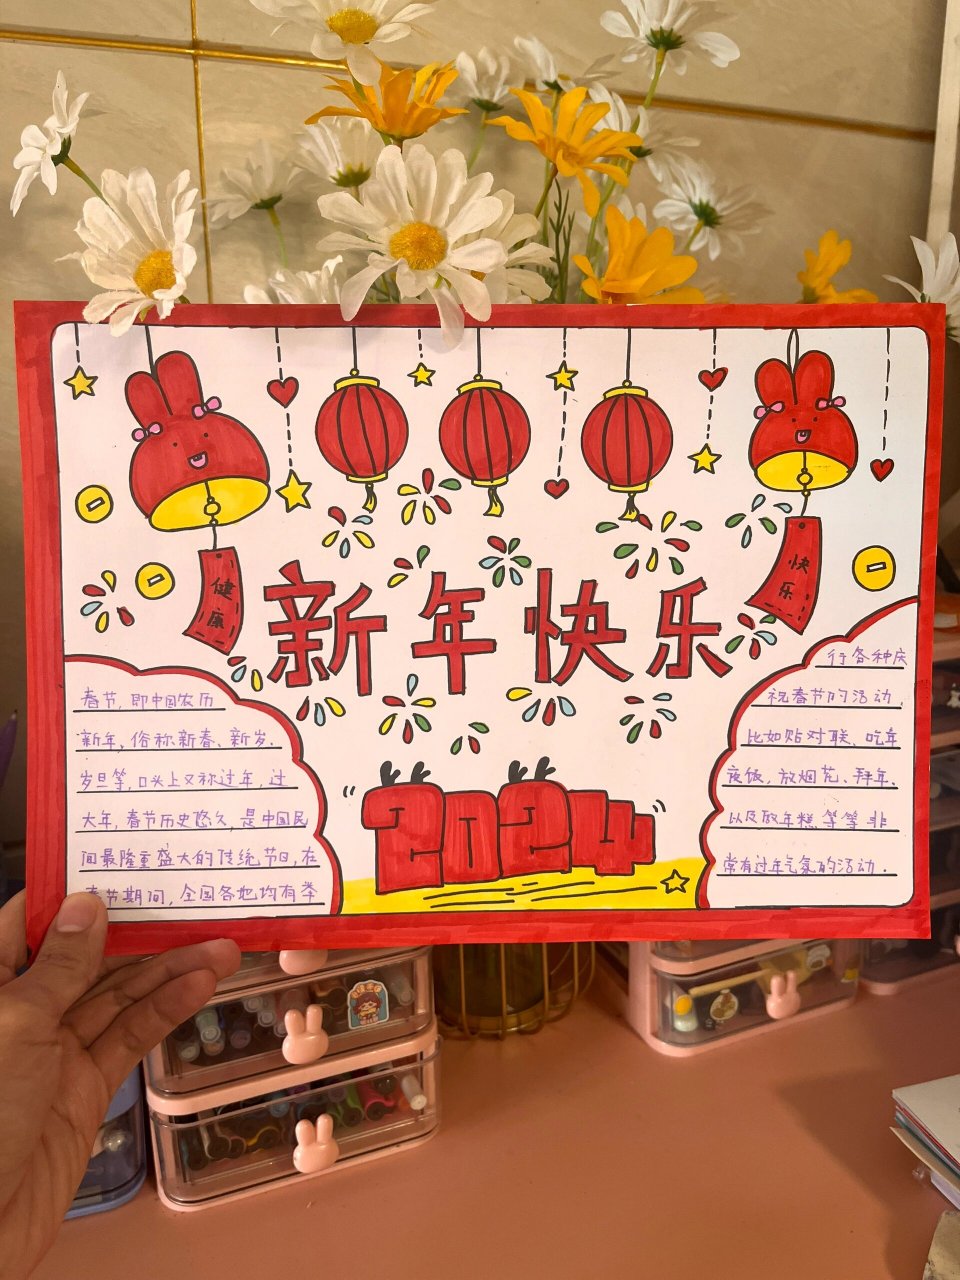 健康
快乐
新年快乐
春节,即中国农历
新年,俗称新春、新岁.
岁旦等,口头上又称过年,过
大年,春节历史悠久,是中国民
间最隆重盛大的传统节日,在
春节期间,全国各地均有举
行各种庆
祝春节的活动,
比如贴对联、吃年
夜饭,放烟花、拜年、
以及做年糕等等非
常有过年气氛的活动.
2024